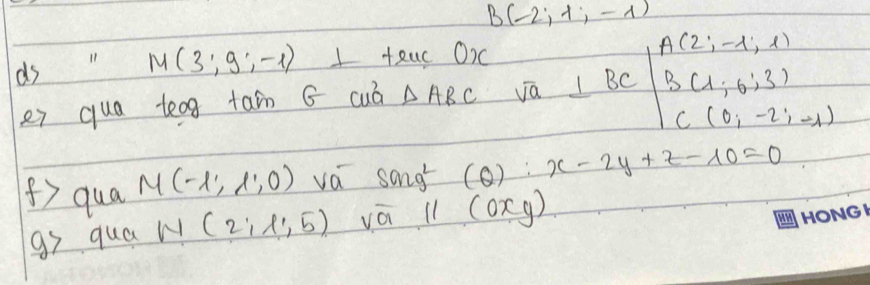 B(-2; 1; -1)
d> " M(3; 9; -1) ⊥ trục Ox
e> qua trọg tâm G của Δ ABC và ⊥ BC
A(2; -1; 1)
B(1; 6; 3)
C (0; -2; -1)
f> qua M(-1; 1; 0) và song² (Q) : x - 2y + z - 10 = 0
g> qua N (2; 1; 5) và // (Oxy)
HONG